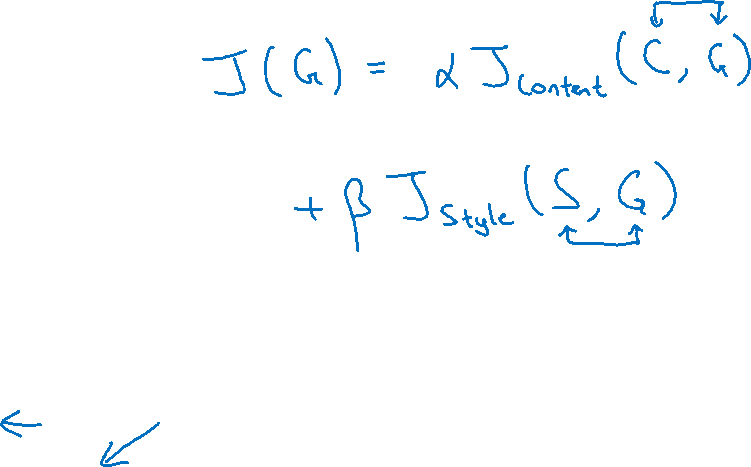 J(G) = α J_content (C, G)
+ β J_style (S, G)